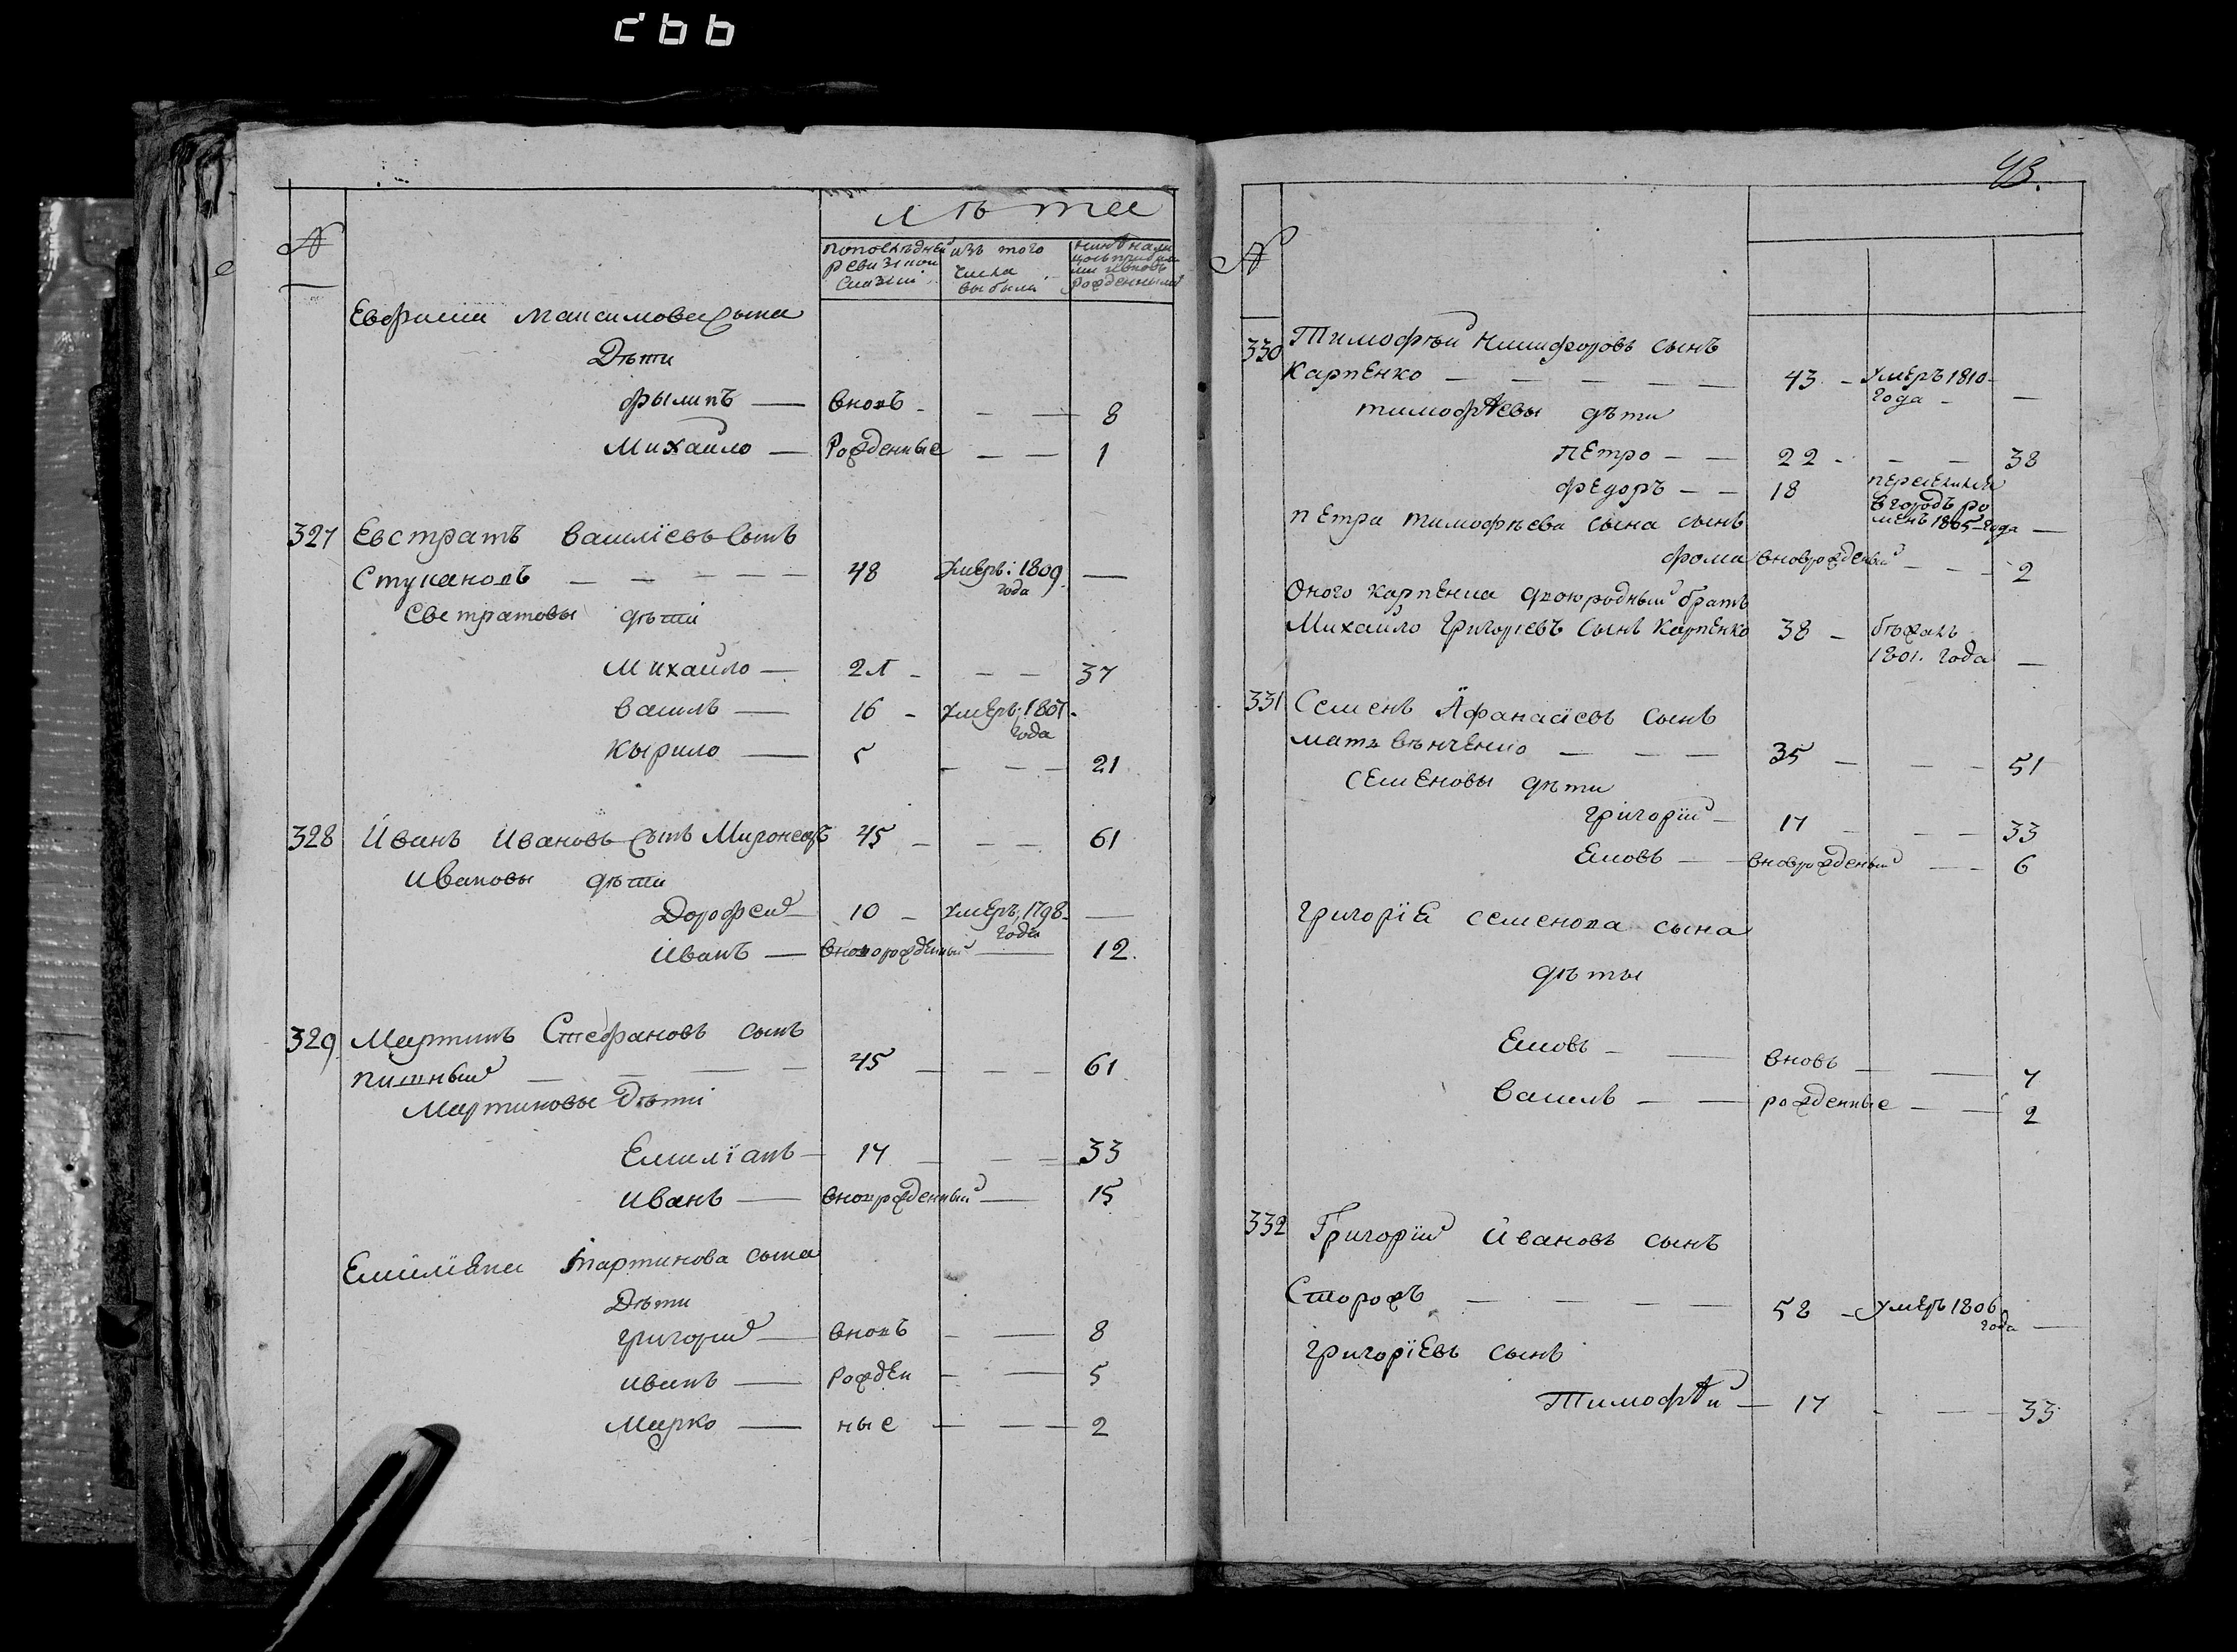 266
№
лѣта
попослѣдней ревизской сказки
изъ того числа выбыли
рожденными
Максимова сына
Дѣти
Фылипъ — вновь - — — 8
Михайло — Рожденные — — 1
327 Евстратъ Василїевъ сынъ
48 умеръ: 1809 года —
Евстратовы дѣти
Михайло — 21 - — — 37
Василь — 16 - умеръ: 1807 года
Кырило — 5 — — — 21
328 Иванъ Ивановъ сынъ 45 — — — 61
Ивановы дѣти
Дорофей — 10 — умеръ, 1798 года —
Иванъ — вноворожденный — 12.
329 Мартинъ Стефановъ сынъ
45 — — — 61
Мартиновы Дѣти
Емилїанъ — 17 — — — 33
Иванъ — вноворожденный — 15
Емилїана Мартинова сына
Дѣти
Григорий — вновь — — 8
Иванъ — рожден — — 5
Марко — ные — — 2
43.
№
330 Тимофѣй Никифоровъ сынъ
Карпенко — — — — — 43 - умеръ 1810 - года - —
тимофѣевы дѣти
Петро — — 22 - — — 38
Федоръ — — 18 в городъ ромень 1805 года —
Петра тимофѣева сына сынъ
Фома вноврожденый — — — 2
Оного карпенка двоюродный братъ
Михайло Григорїевъ сынъ Карпенко 38 — бѣжалъ 1801. года —
331 Семенъ Афанасїевъ сынъ
матвѣнченко — — — 35 — — — 51
Семеновы дѣти
Григорїй — 17 — — — 33
Яковъ — вноврожденый — — 6
Григорїя семенова сына
дѣты
Яковъ — — вновь — — 7
Василь — — рожденные — — 2
332 Григорїй Ивановъ сынъ
Сторожъ — — — — 58 — умеръ 1806 года —
Григорїевъ сынъ
Тимофѣй — 17 - — — 33